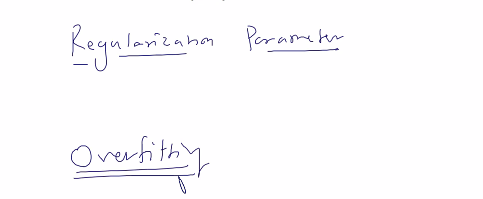 Regularization Parameter
Overfitting